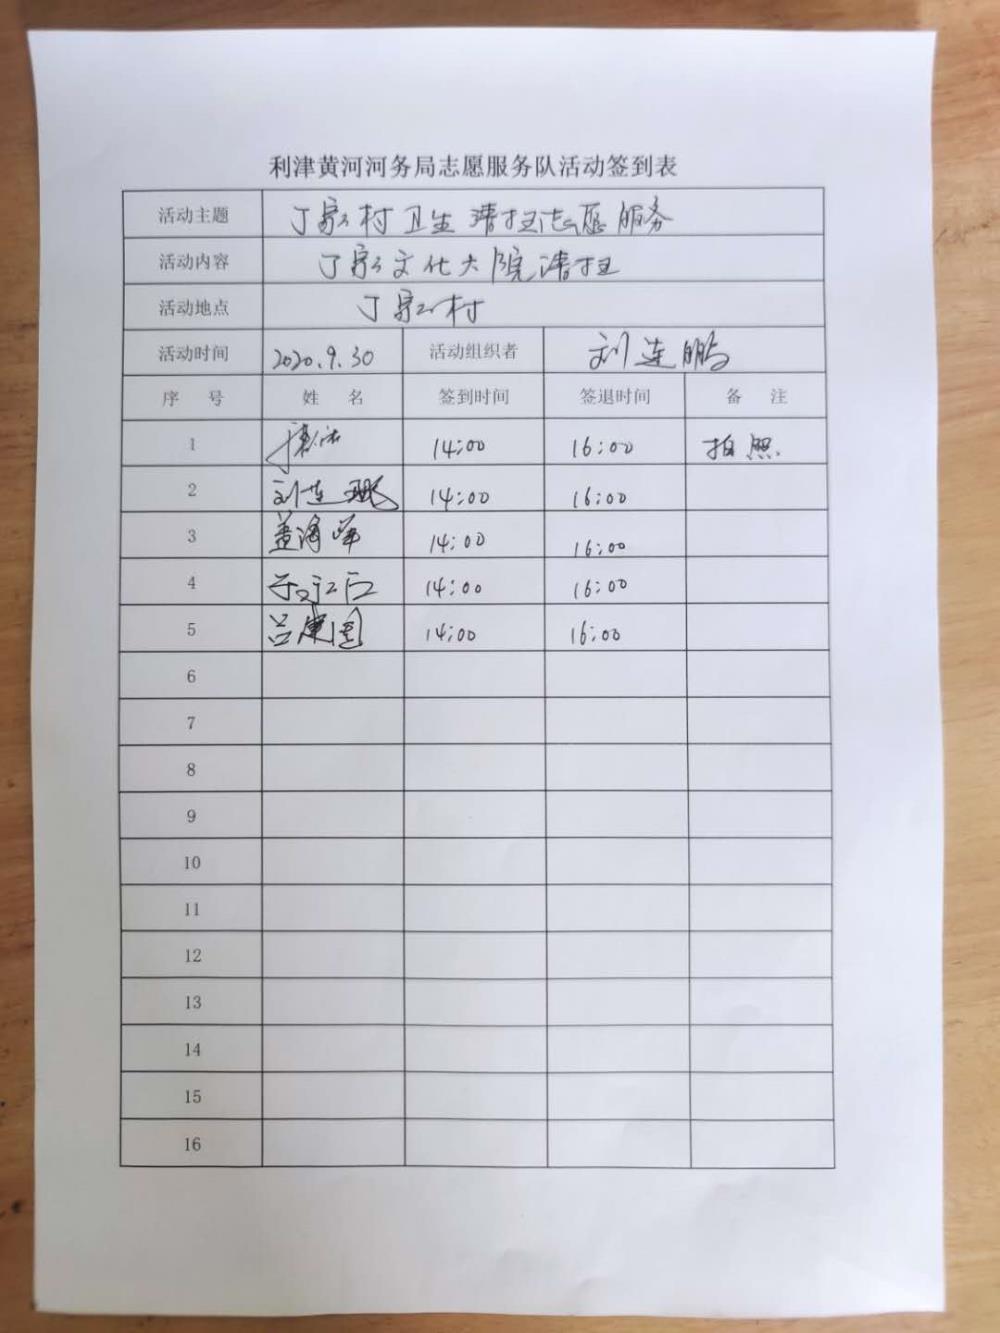 利津黄河河务局志愿服务队活动签到表
活动主题 丁家村卫生清扫志愿服务
活动内容 丁家文化大院清扫
活动地点 丁家村
活动时间 2020.9.30 活动组织者 刘连鹏
序 号 姓 名 签到时间 签退时间 备 注
1 14:00 16:00 拍照
2 刘连 14:00 16:00
3 盖海峰 14:00 16:00
4 14:00 16:00
5 吕建国 14:00 16:00
6
7
8
9
10
11
12
13
14
15
16